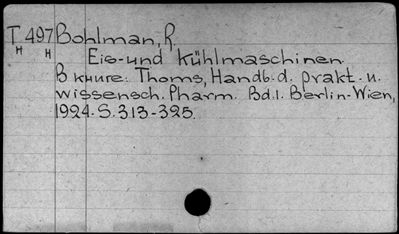 T 497 Bohlman, R.
H H
Eis-und Kühlmaschinen.
В книге: Thoms, Handb. d. prakt. u.
wissensch. Pharm. Bd. 1. Berlin-Wien,
1924. S. 313-325.